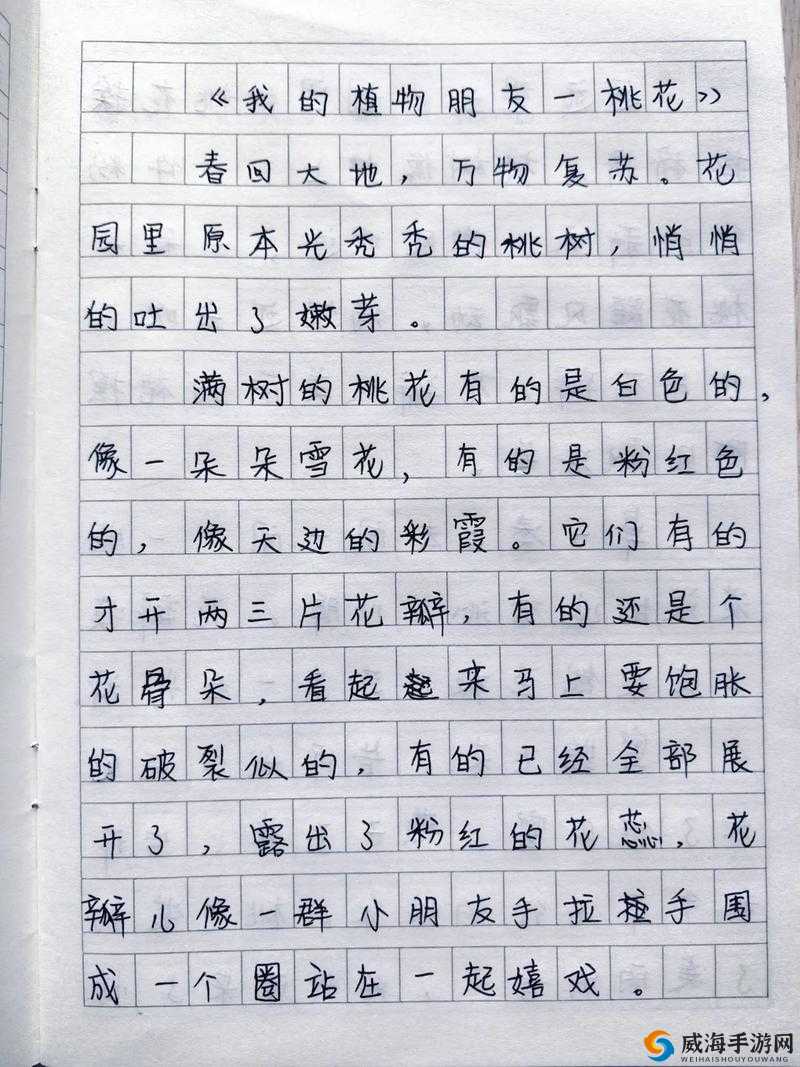 《我的植物朋友一桃花》
春回大地，万物复苏。花
园里原本光秃秃的桃树，悄悄
的吐出了嫩芽。
满树的桃花有的是白色的，
像一朵朵雪花，有的是粉红色
的，像天边的彩霞。它们有的
才开两三片花瓣，有的还是个
花骨朵，看起来马上要饱胀
的破裂似的，有的已经全部展
开了，露出了粉红的花蕊，花
瓣儿像一群小朋友手拉手围
成一个圈站在一起嬉戏。
威海手游网
WEIHAISHOUYOUWANG